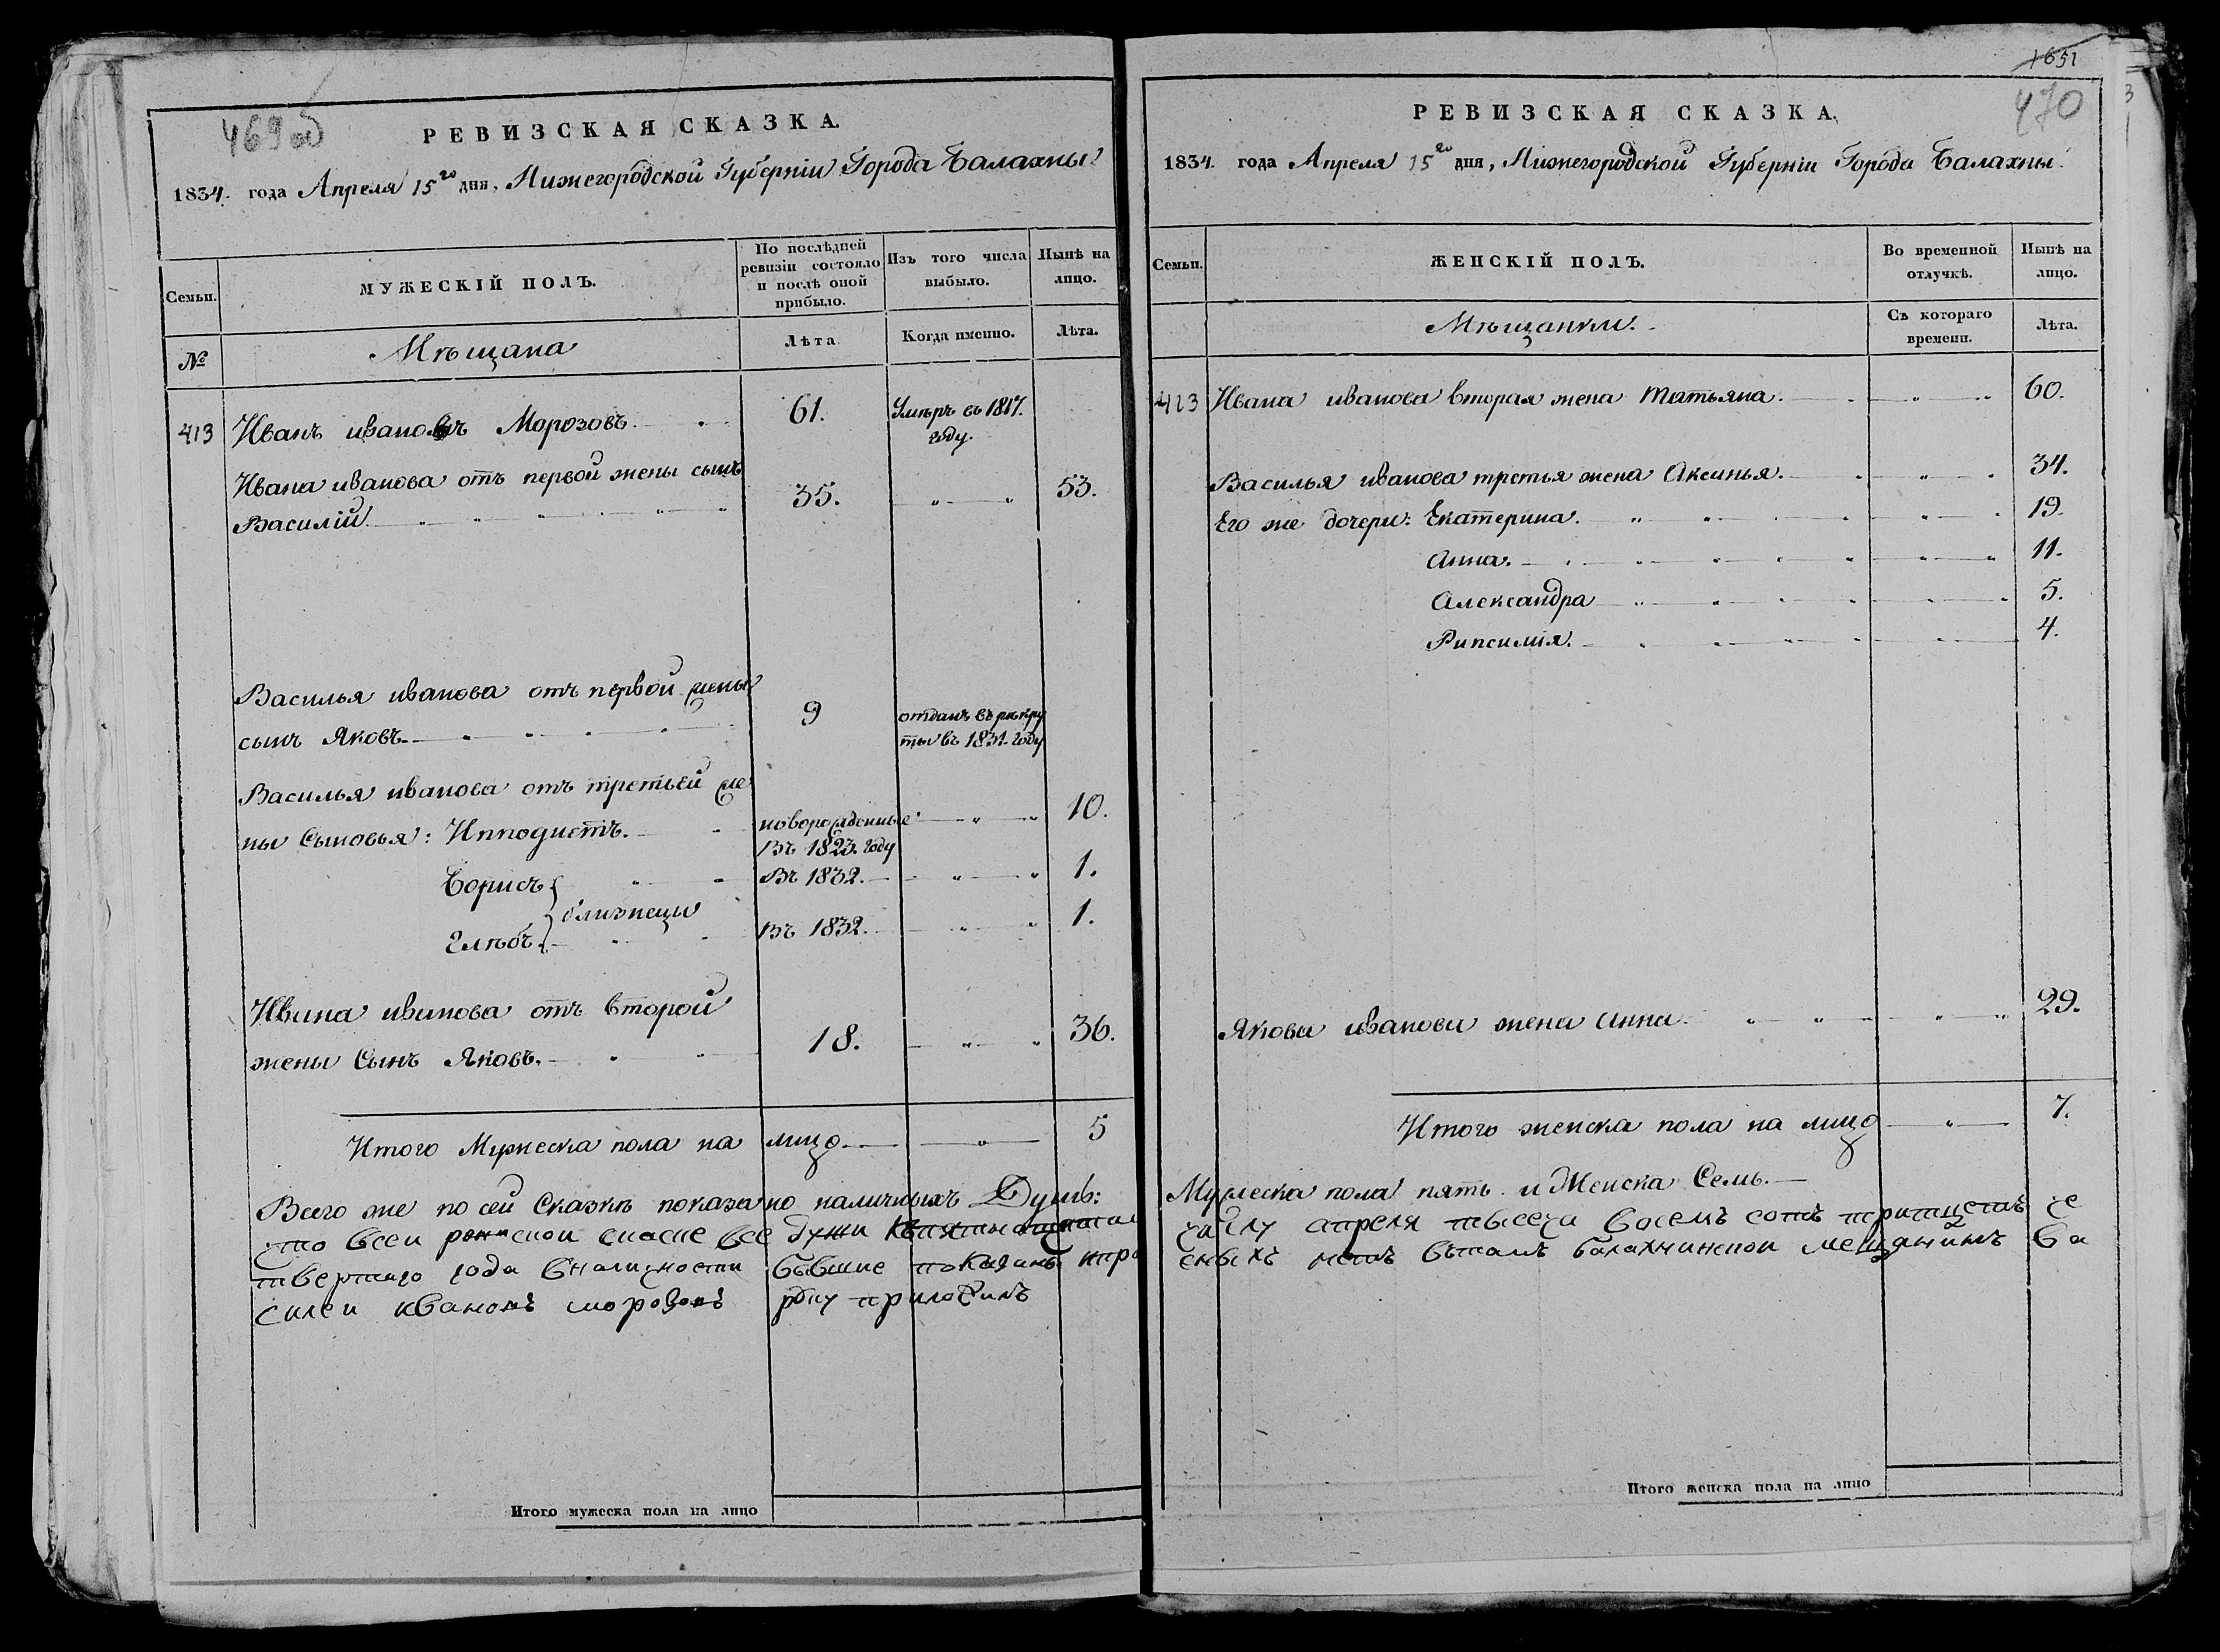 469 об
РЕВИЗСКАЯ СКАЗКА.
1834. года Апреля 15го дня, Нижегородской Губерніи Города Балахны.
Семьи.
МУЖЕСКІЙ ПОЛЪ.
По послѣдней ревизіи состояло и послѣ оной прибыло.
Изъ того числа выбыло.
Нынѣ на лицо.
№
Мѣщана
Лѣта.
Когда именно.
Лѣта.
413 Иванъ ивановъ Морозовъ. 61. Умеръ въ 1817. году.
Ивана иванова отъ первой жены сынъ
Василій. 35. 53.
Василья иванова отъ первой жены
сынъ Яковъ. 9 отданъ въ рекру
ты въ 1831. году
Василья иванова отъ третьей же
ны Сыновья: Иподистъ. новорожденные 10.
Въ 1823. году
Борисъ Въ 1832. 1.
близнецы
Глѣбъ. Въ 1832. 1.
Ивана иванова отъ второй
жены Сынъ Яковъ. 18. 36.
Итого Мужеска пола на лицо 5
Всего же по сей Сказкѣ показано наличныхъ Душъ:
что всеи скаске все души
твертаго года вналичности бывшие показаны
силеи ивановъ морозовъ руку приложилъ
Итого мужеска пола на лицо
1651
470
РЕВИЗСКАЯ СКАЗКА.
1834. года Апреля 15го дня, Нижегородской Губерніи Города Балахны.
Семьи.
ЖЕНСКІЙ ПОЛЪ.
Во временной отлучкѣ.
Нынѣ на лицо.
Мѣщанки.
Съ котораго времени.
Лѣта.
413 Ивана иванова вторая жена Татьяна. 60.
Василья иванова третья жена Аксинья. 34.
Его же дочери: Екатерина. 19.
Анна. 11.
Александра 5.
Рипсимія. 4.
Якова иванова жена Анна. 29.
Итого женска пола на лицо 7.
Мужеска пола пять. и Женска Семь.
числу апреля тысеча восемъ сотъ тритцеть че
балахнинскои мещанинъ ва
Итого женска пола на лицо